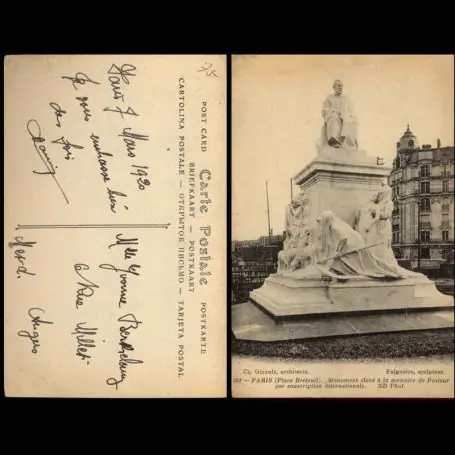 75
Paris 7 Mars 1920
Je vous embrasse bien
des fois
POST CARD
Carte Postale
POSTKARTE
BRIEFKAART — POSTKAART
CARTOLINA POSTALE — ОТКРЫТОЕ ПИСЬМО — TARJETA POSTAL
Mlle Yvonne
6 Rue Millet
Angers
Ch. Girault, architecte.
Falguière, sculpteur.
601 - PARIS (Place Breteuil). Monument élevé à la mémoire de Pasteur
par souscription internationale. ND Phot